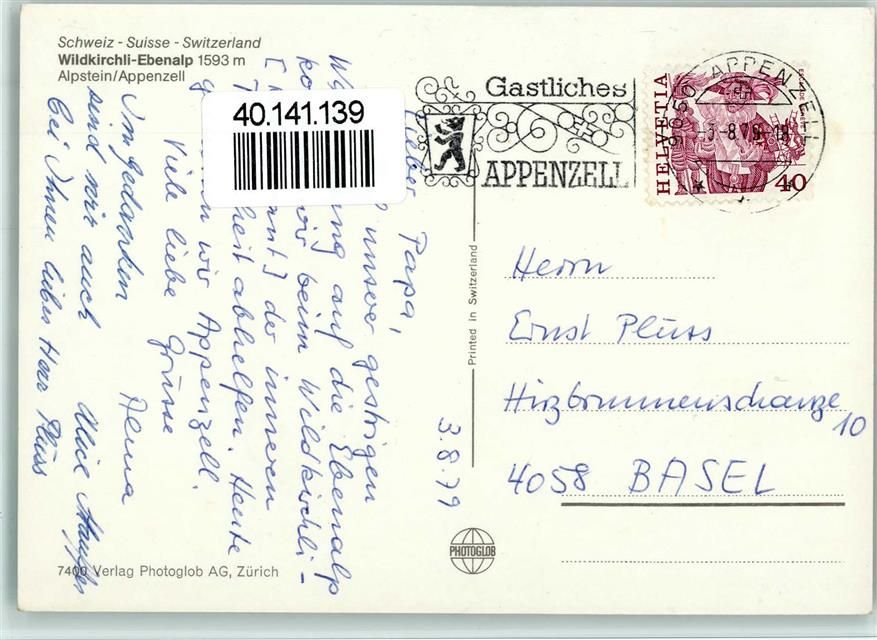 Schweiz - Suisse - Switzerland
Wildkirchli-Ebenalp 1593 m
Alpstein/Appenzell
40.141.139
Gastliches
APPENZELL
9050 APPENZELL
-3.-8.79-18
HELVETIA
40
3.8.79
Lieber Papa,
unserer gestrigen
auf die Ebenalp
wir beim Wildkirchli-
der inneren
abhelfen. Heute
wir Appenzell.
Viele liebe Grüsse
Im Gedanken
sind wir auch
bei Ihnen lieber Herr Plüss
Printed in Switzerland
Herrn
Ernst Plüss
Hirzbrunnenschanze
10
4058 BASEL
PHOTOGLOB
7400 Verlag Photoglob AG, Zürich